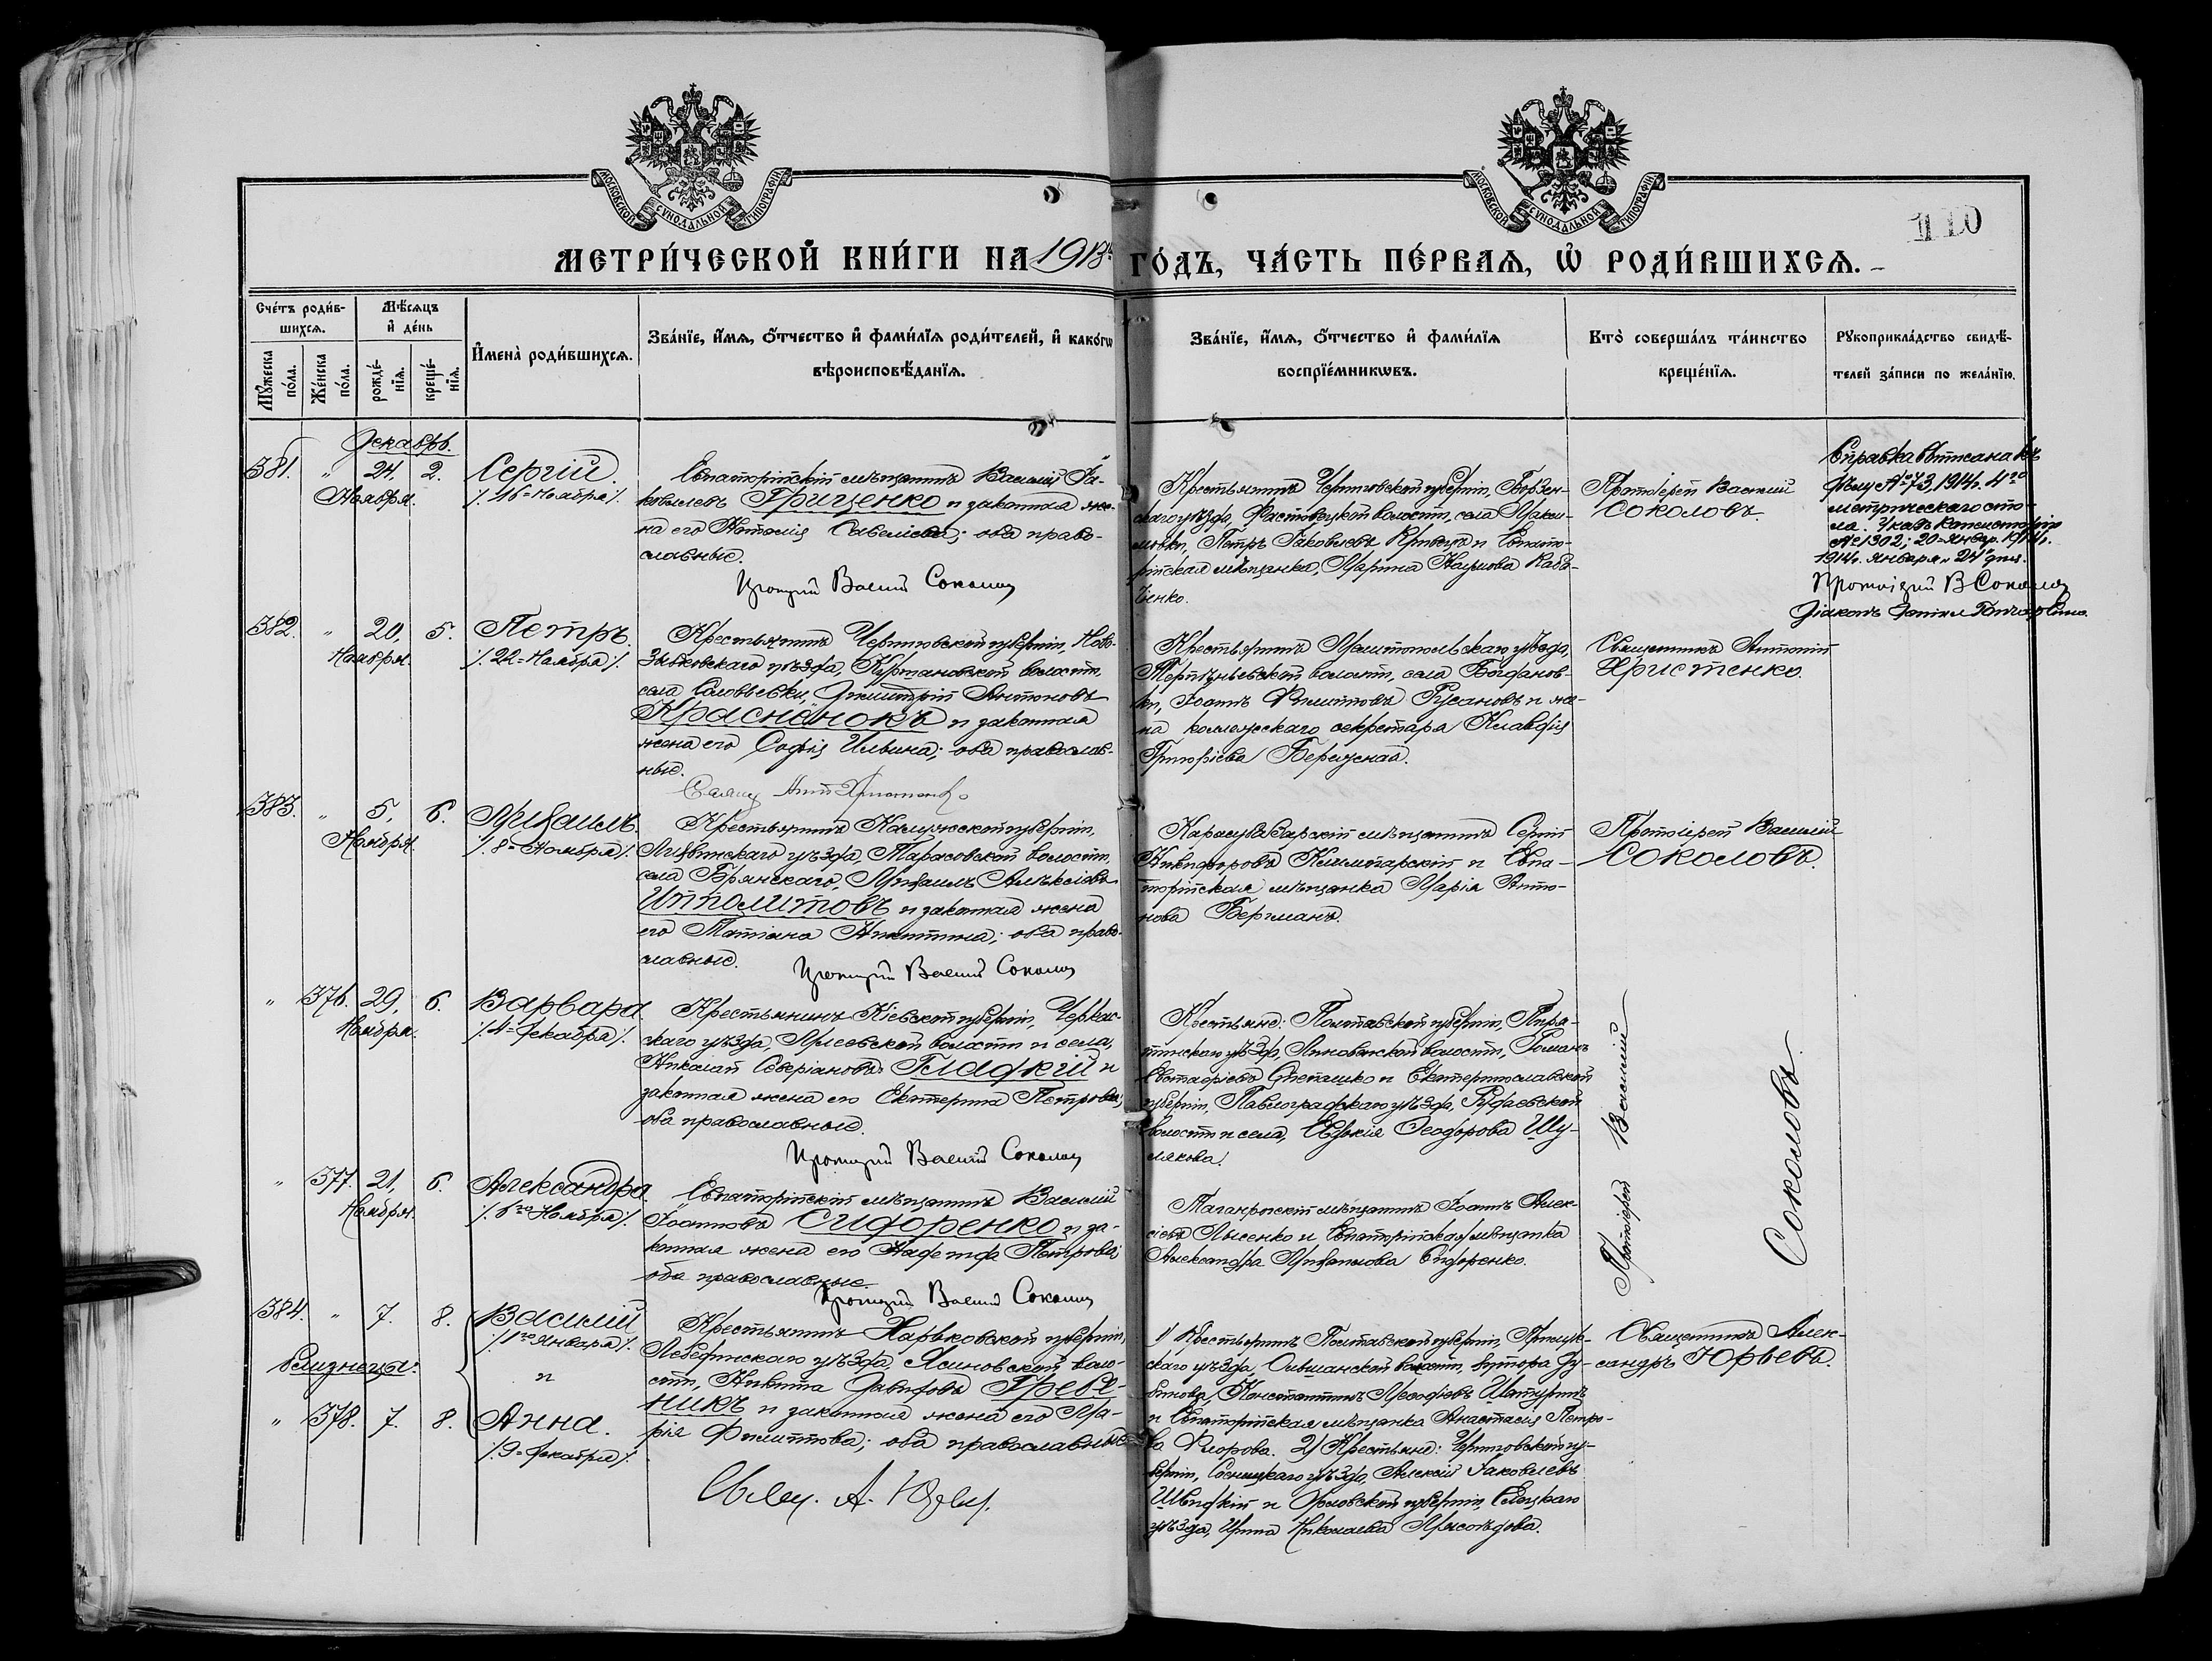 МОСКОВСКОЙ СѴНОДАЛЬНОЙ ТИПОГРАФІИ
МОСКОВСКОЙ СѴНОДАЛЬНОЙ ТИПОГРАФІИ
110
МЕТРИ́ЧЕСКОЙ КНИ́ГИ НА 1913й ГО́ДЪ, ЧА́СТЬ ПЕ́РВАЯ, Ѡ РОДИ́ВШИХСЯ.
Сче́тъ роди́в-
шихся.
Мѣ́сяцъ
и де́нь
Мꙋ́жеска по́ла.
Же́нска по́ла.
рожде́-
нїя.
креще́-
нїя.
Имена̀ роди́вшихся.
Зва́нїе, и́мя, о́тчество и фами́лїя роди́телей, и како́гѡ
вѣроисповѣ́данїя.
Зва́нїе, и́мя, о́тчество и фами́лїя
воспрїе́мникѡвъ.
Кто̀ соверша́лъ та́инство
креще́нїя.
Рꙋкоприкла́дство свидѣ́-
телей за́писи по жела́нїю.
Декабрь.
381. " 24, 2.
Ноября.
Сергій.
/. 16 = Ноября /.
Евпаторійскій мѣщанинъ Василій Іа-
ковлевъ Грищенко и законная же-
на его Наталія Савелиева; оба право-
славные.
Протоіерей Василий Соколов
Крестьянинъ Черниговской губерніи, Борзен-
скаго уѣзда, Фастовецкой волости, села Макси-
мовки, Петръ Іаковлевъ Кривецъ и Евпато-
рійская мѣщанка, Марина Наумова Рабо-
Протоіерей Василий
Соколовъ.
Справка выписана къ
дѣлу № 73, 1914 г. 4го
метрическаго сто-
ла. Указъ Консисторіи
№ 1302; 20 январ. 1914 г.
1914 г. января 24 дня.
Протоіерей В Соколов
382. " 20, 5.
Ноября.
Петръ.
/. 22 = Ноября /.
Крестьянинъ Черниговской губерніи, Ново-
Зыбковскаго уѣзда, волости,
села Соловьевки, Димитрій Антоновъ
Красненокъ и законная
жена его Софія Ильина; оба православ-
ные.
Крестьянинъ Мелитопольскаго уѣзда,
волости, села Богданов-
ки, Іоаннъ Филипповъ Русановъ и же-
на коллежскаго секретаря Клавдія
Григоріева Бережная.
Священникъ Антоній
Христенко.
383. " 5, 6.
Ноября.
Михаилъ.
/. 8 = Ноября /.
Крестьянинъ Калужской губерніи,
Лихвинскаго уѣзда, Тарасовской волости,
села Брянскаго, Михаилъ Алексіевъ
Ипполитовъ и законная жена
его Татіана Никитина; оба право-
славные.
Протоіерей Василий Соколов
Карасубазарскій мѣщанинъ Сергій
Никифоровъ и Евпа-
торійская мѣщанка Марія Анто-
нова Бергманъ.
Протоіерей Василий
Соколовъ.
" 376. 29, 6.
Ноября.
Варвара
/. 4 = Декабря /.
Крестьянинъ Кіевской губерніи, Черкас-
скаго уѣзда, волости и села,
Николай Северіановъ Гладкій и
законная жена его Екатерина Петрова;
оба православные.
Протоіерей Василий Соколов
Крестьяне: Полтавской губерніи, Пиря-
тинскаго уѣзда, волости, Романъ
Евстафіевъ и Екатеринославской
губерніи, Павлоградскаго уѣзда,
волости и села, Евдокія Ѳеодорова Шу-
лякова.
Протоіерей Василий
Соколовъ.
" 377. 21, 6.
Ноября.
Александра.
/. 6го Ноября /.
Евпаторійскій мѣщанинъ Василій
Іоанновъ Сидоренко и за-
конная жена его Надежда Петрова;
оба православные.
Протоіерей Василий Соколов
Таганрогскій мѣщанинъ Іоаннъ Алек-
сіевъ Лысенко и Евпаторійская мѣщанка
Александра Михаилова Сидоренко.
384. " 7. 8.
Василій
/. 1го Января /.
близнецы.
и
" 378. 7. 8.
Анна.
/. 9 = Декабря /.
Крестьянинъ Харьковской губерніи,
Лебединскаго уѣзда, Ясиновской воло-
сти, Никита Давидовъ Гребе-
никъ и законная жена его Ма-
рія Филиппова; оба православные.
Свящ. А. Юрьев.
1/ Крестьянинъ Полтавской губерніи, Прилук-
скаго уѣзда, волости, хутора Ду-
бинова, Константинъ
и Евпаторійская мѣщанка Анастасія Петро-
ва 2/ Крестьяне: Черниговской гу-
берніи, Сосницкаго уѣзда, Алексій Іаковлевъ
и Орловской губерніи, Елецкаго
уѣзда, Ирина Николаева
Священникъ Алек-
сандръ Юрьевъ.